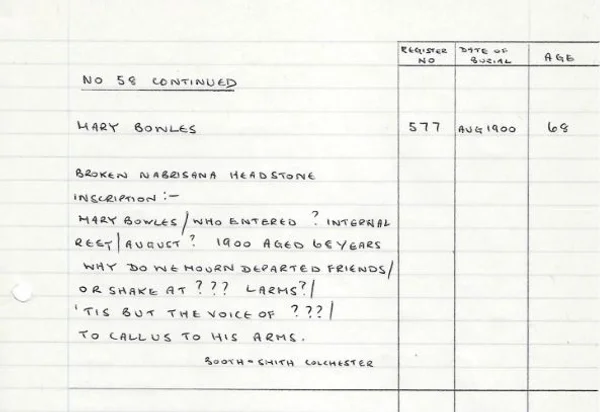 REGISTER NO
DATE OF BURIAL
AGE
NO 58 CONTINUED
MARY BOWLES 577 AUG 1900 68
BROKEN NABRISANA HEADSTONE
INSCRIPTION :-
MARY BOWLES/WHO ENTERED ? INTERNAL
REST/AUGUST ? 1900 AGED 68 YEARS
WHY DO WE MOURN DEPARTED FRIENDS/
OR SHAKE AT ? ? ? LARMS?/
'TIS BUT THE VOICE OF ? ? ?/
TO CALL US TO HIS ARMS.
BOOTH-SMITH COLCHESTER